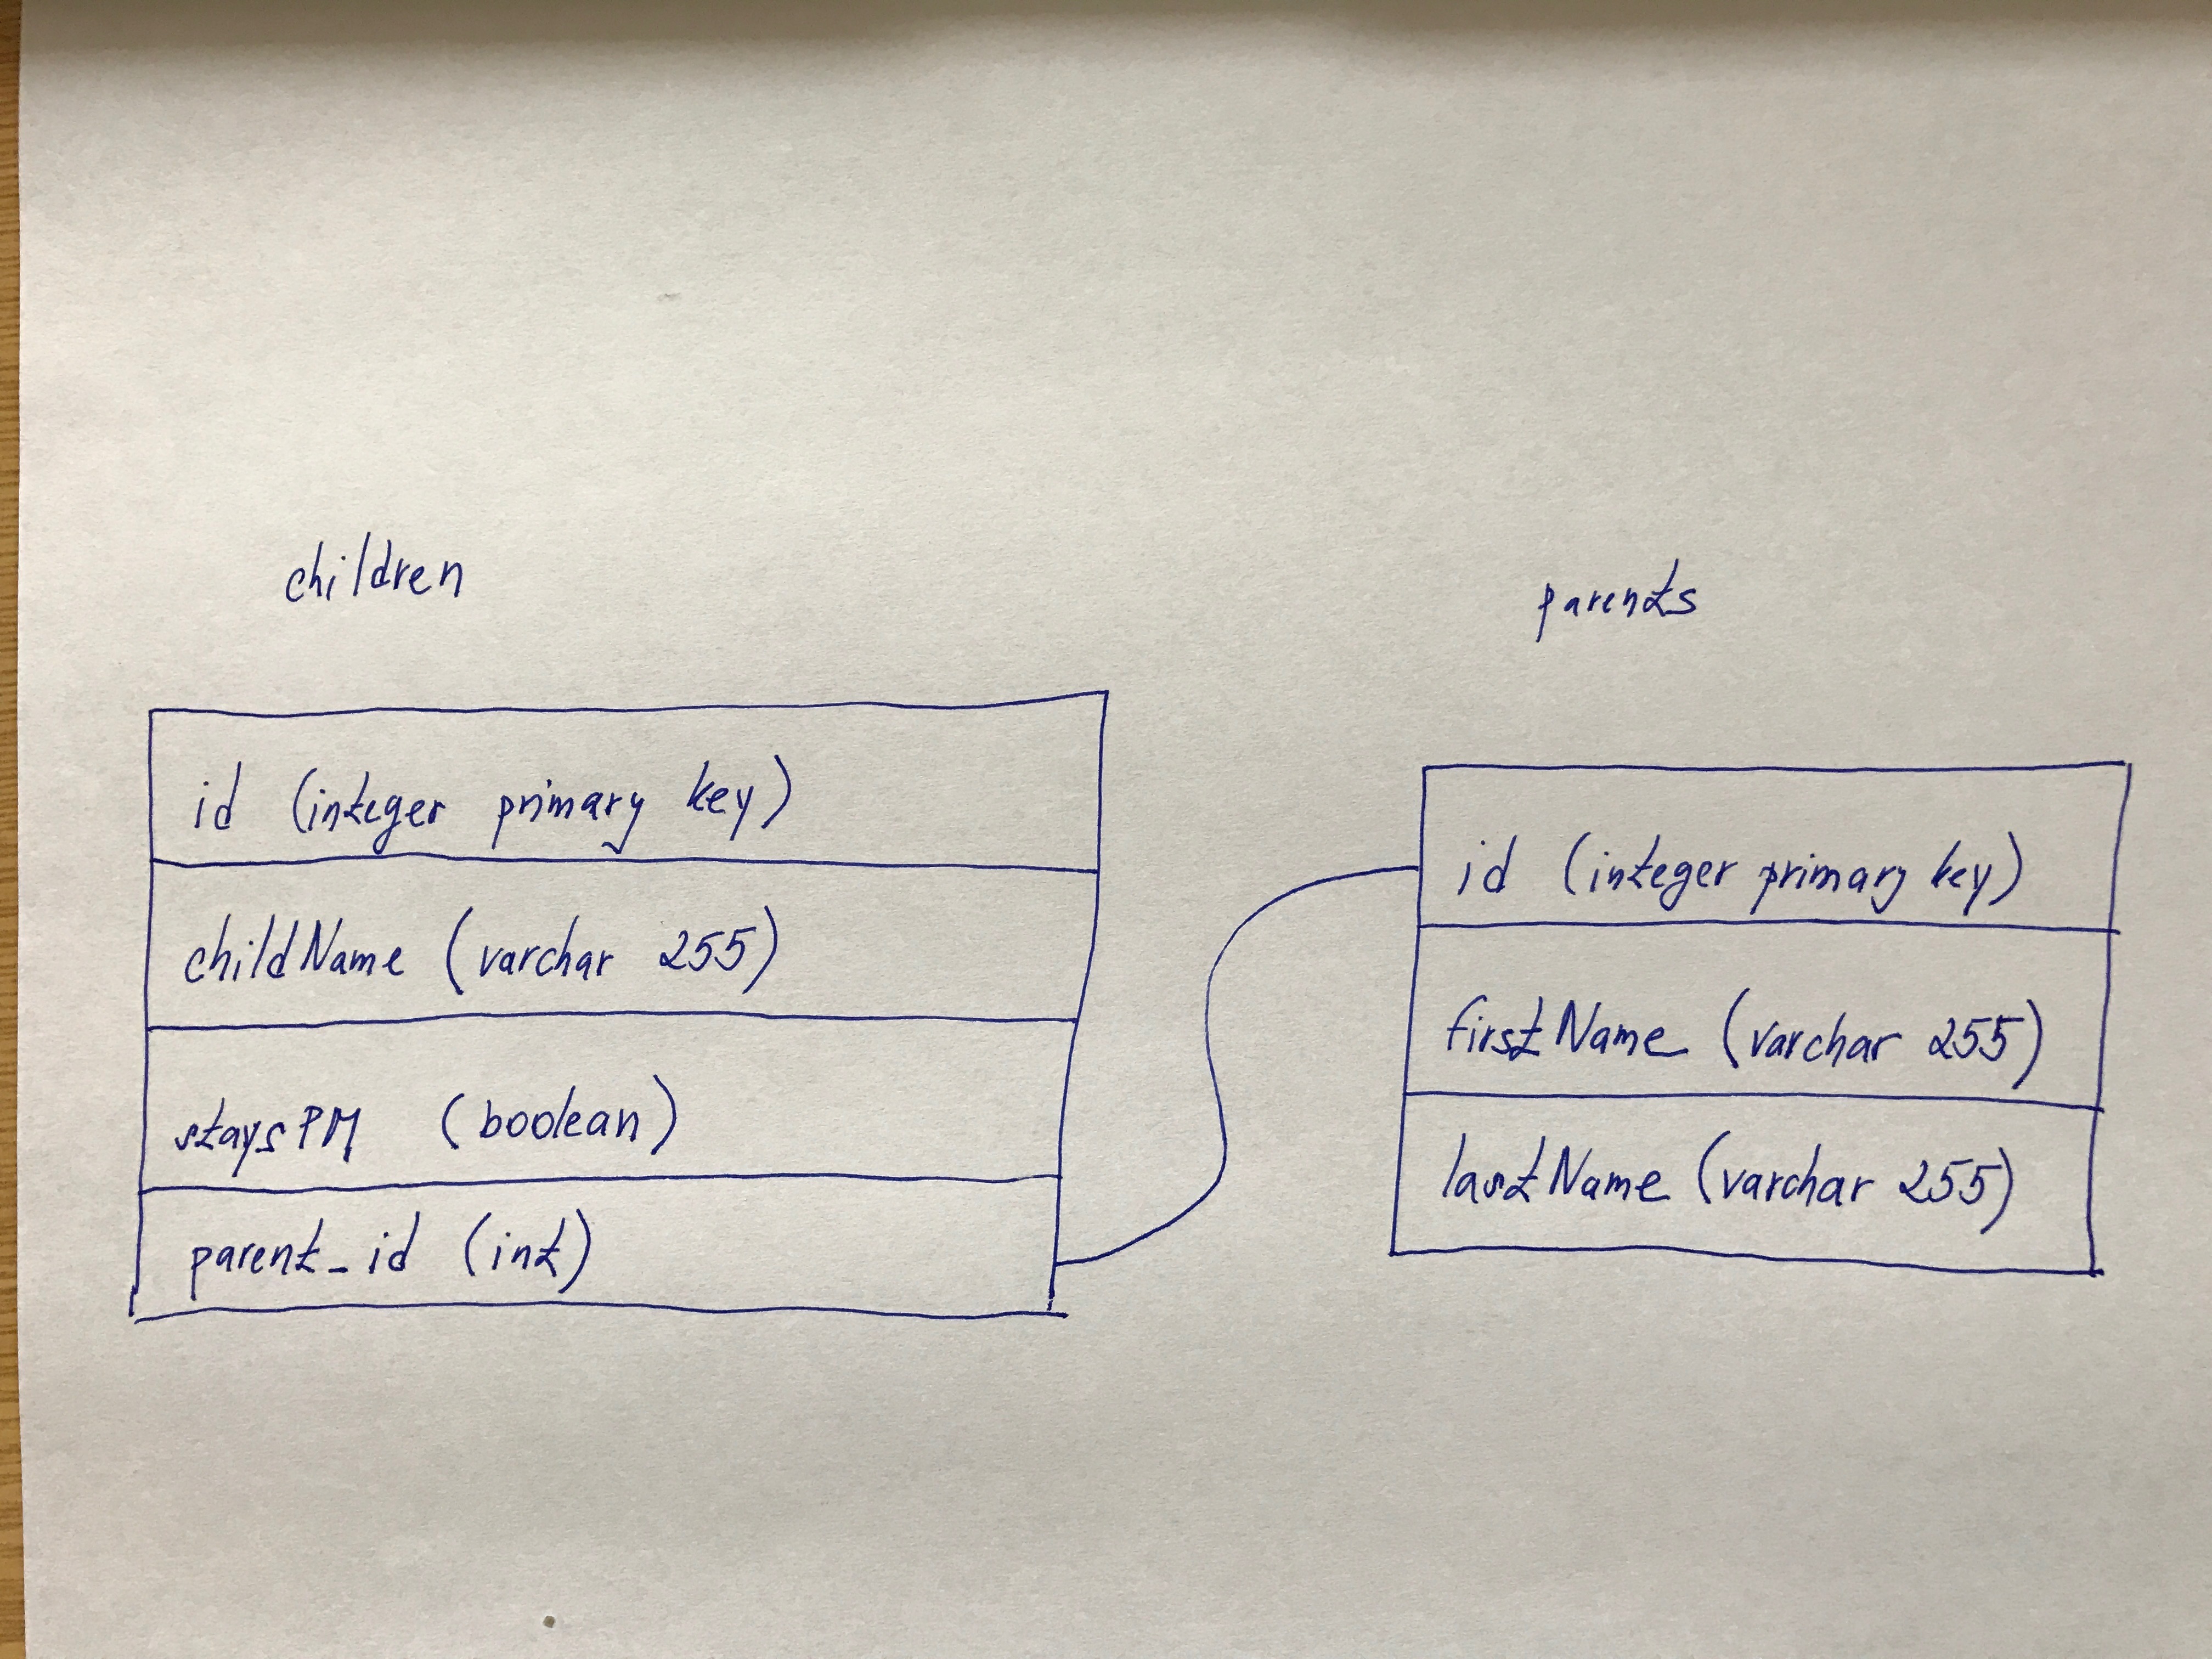 children
id (integer primary key)
childName (varchar 255)
staysPM (boolean)
parent_id (int)
parents
id (integer primary key)
firstName (varchar 255)
lastName (varchar 255)